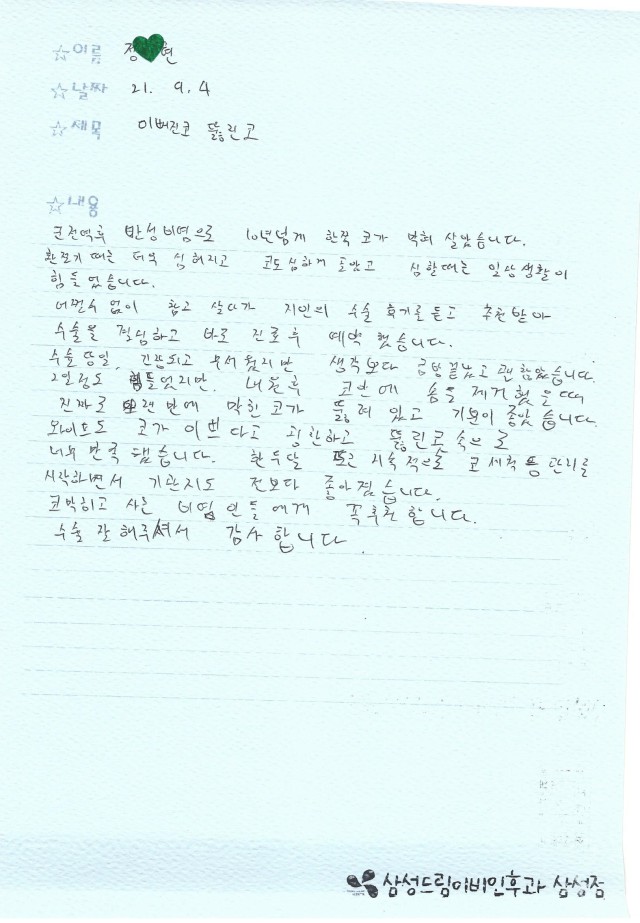 ☆이름 정 현
☆날짜 21. 9. 4
☆제목 이뻐진코 뚫린고
☆내용
만성비염으로 10년넘게 한쪽 코가 막혀 살았습니다.
환절기 때는 더욱 심해지고 코도심하게 골았고 심할때는 일상생활이
힘들었습니다.
어쩔수 없이 참고 살다가 지인의 수술 후기로듣고 추천받아
수술을 결심하고 바로 진료후 예약했습니다.
수술당일, 긴장되고 무서웠지만 생각보다 금방끝났고 괜찮았습니다.
2일정도 힘들었지만. 내원후 코안에 솜을 제거했을때
진짜로 오랜만에 막힌코가 뚫려있고 기분이 좋았습니다.
와이프도 코가 이쁘다고 칭찬하고 뚫린고속으로
너무 만족했습니다. 한두달 지속적으로 코세척등 관리를
시작하면서 기관지도 전보다 좋아졌습니다.
코막히고 사는 비염인들에게 꼭추천합니다.
수술 잘 해주셔서 감사합니다
삼성드림이비인후과 삼성점